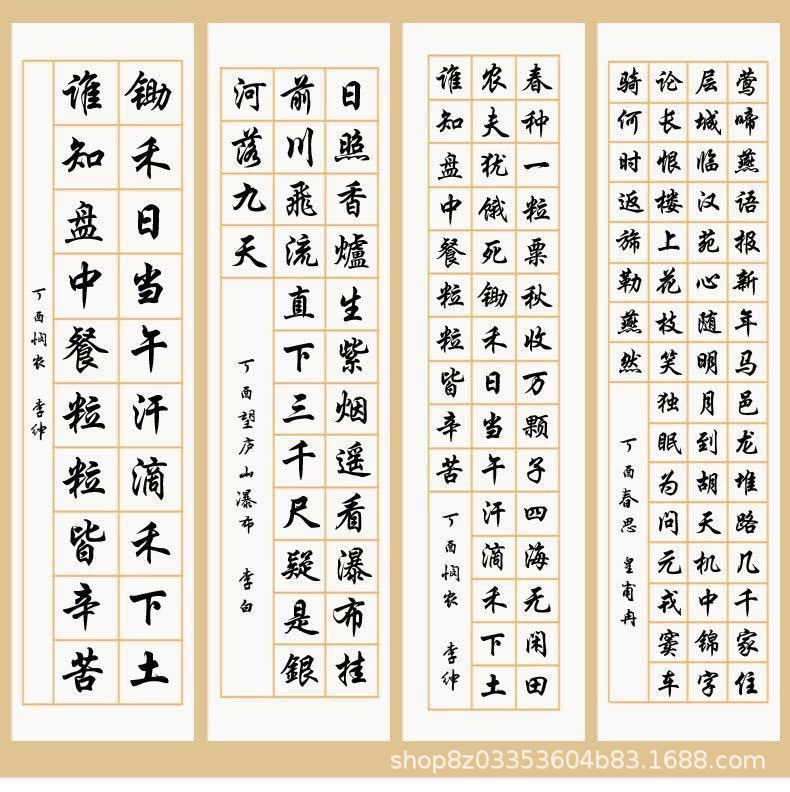 锄禾日当午汗滴禾下土
谁知盘中餐粒粒皆辛苦
丁酉悯农 李绅
日照香爐生紫烟遥看瀑布挂
前川飛流直下三千尺疑是銀
河落九天
丁酉望庐山瀑布 李白
春种一粒粟秋收万颗子四海无闲田
农夫犹饿死锄禾日当午汗滴禾下土
谁知盘中餐粒粒皆辛苦
丁酉悯农 李绅
莺啼燕语报新年马邑龙堆路几千家住
层城临汉苑心随明月到胡天机中锦字
论长恨楼上花枝笑独眠为问元戎窦车
骑何时返旆勒燕然
丁酉春思 皇甫冉
shop8z03353604b83.1688.com